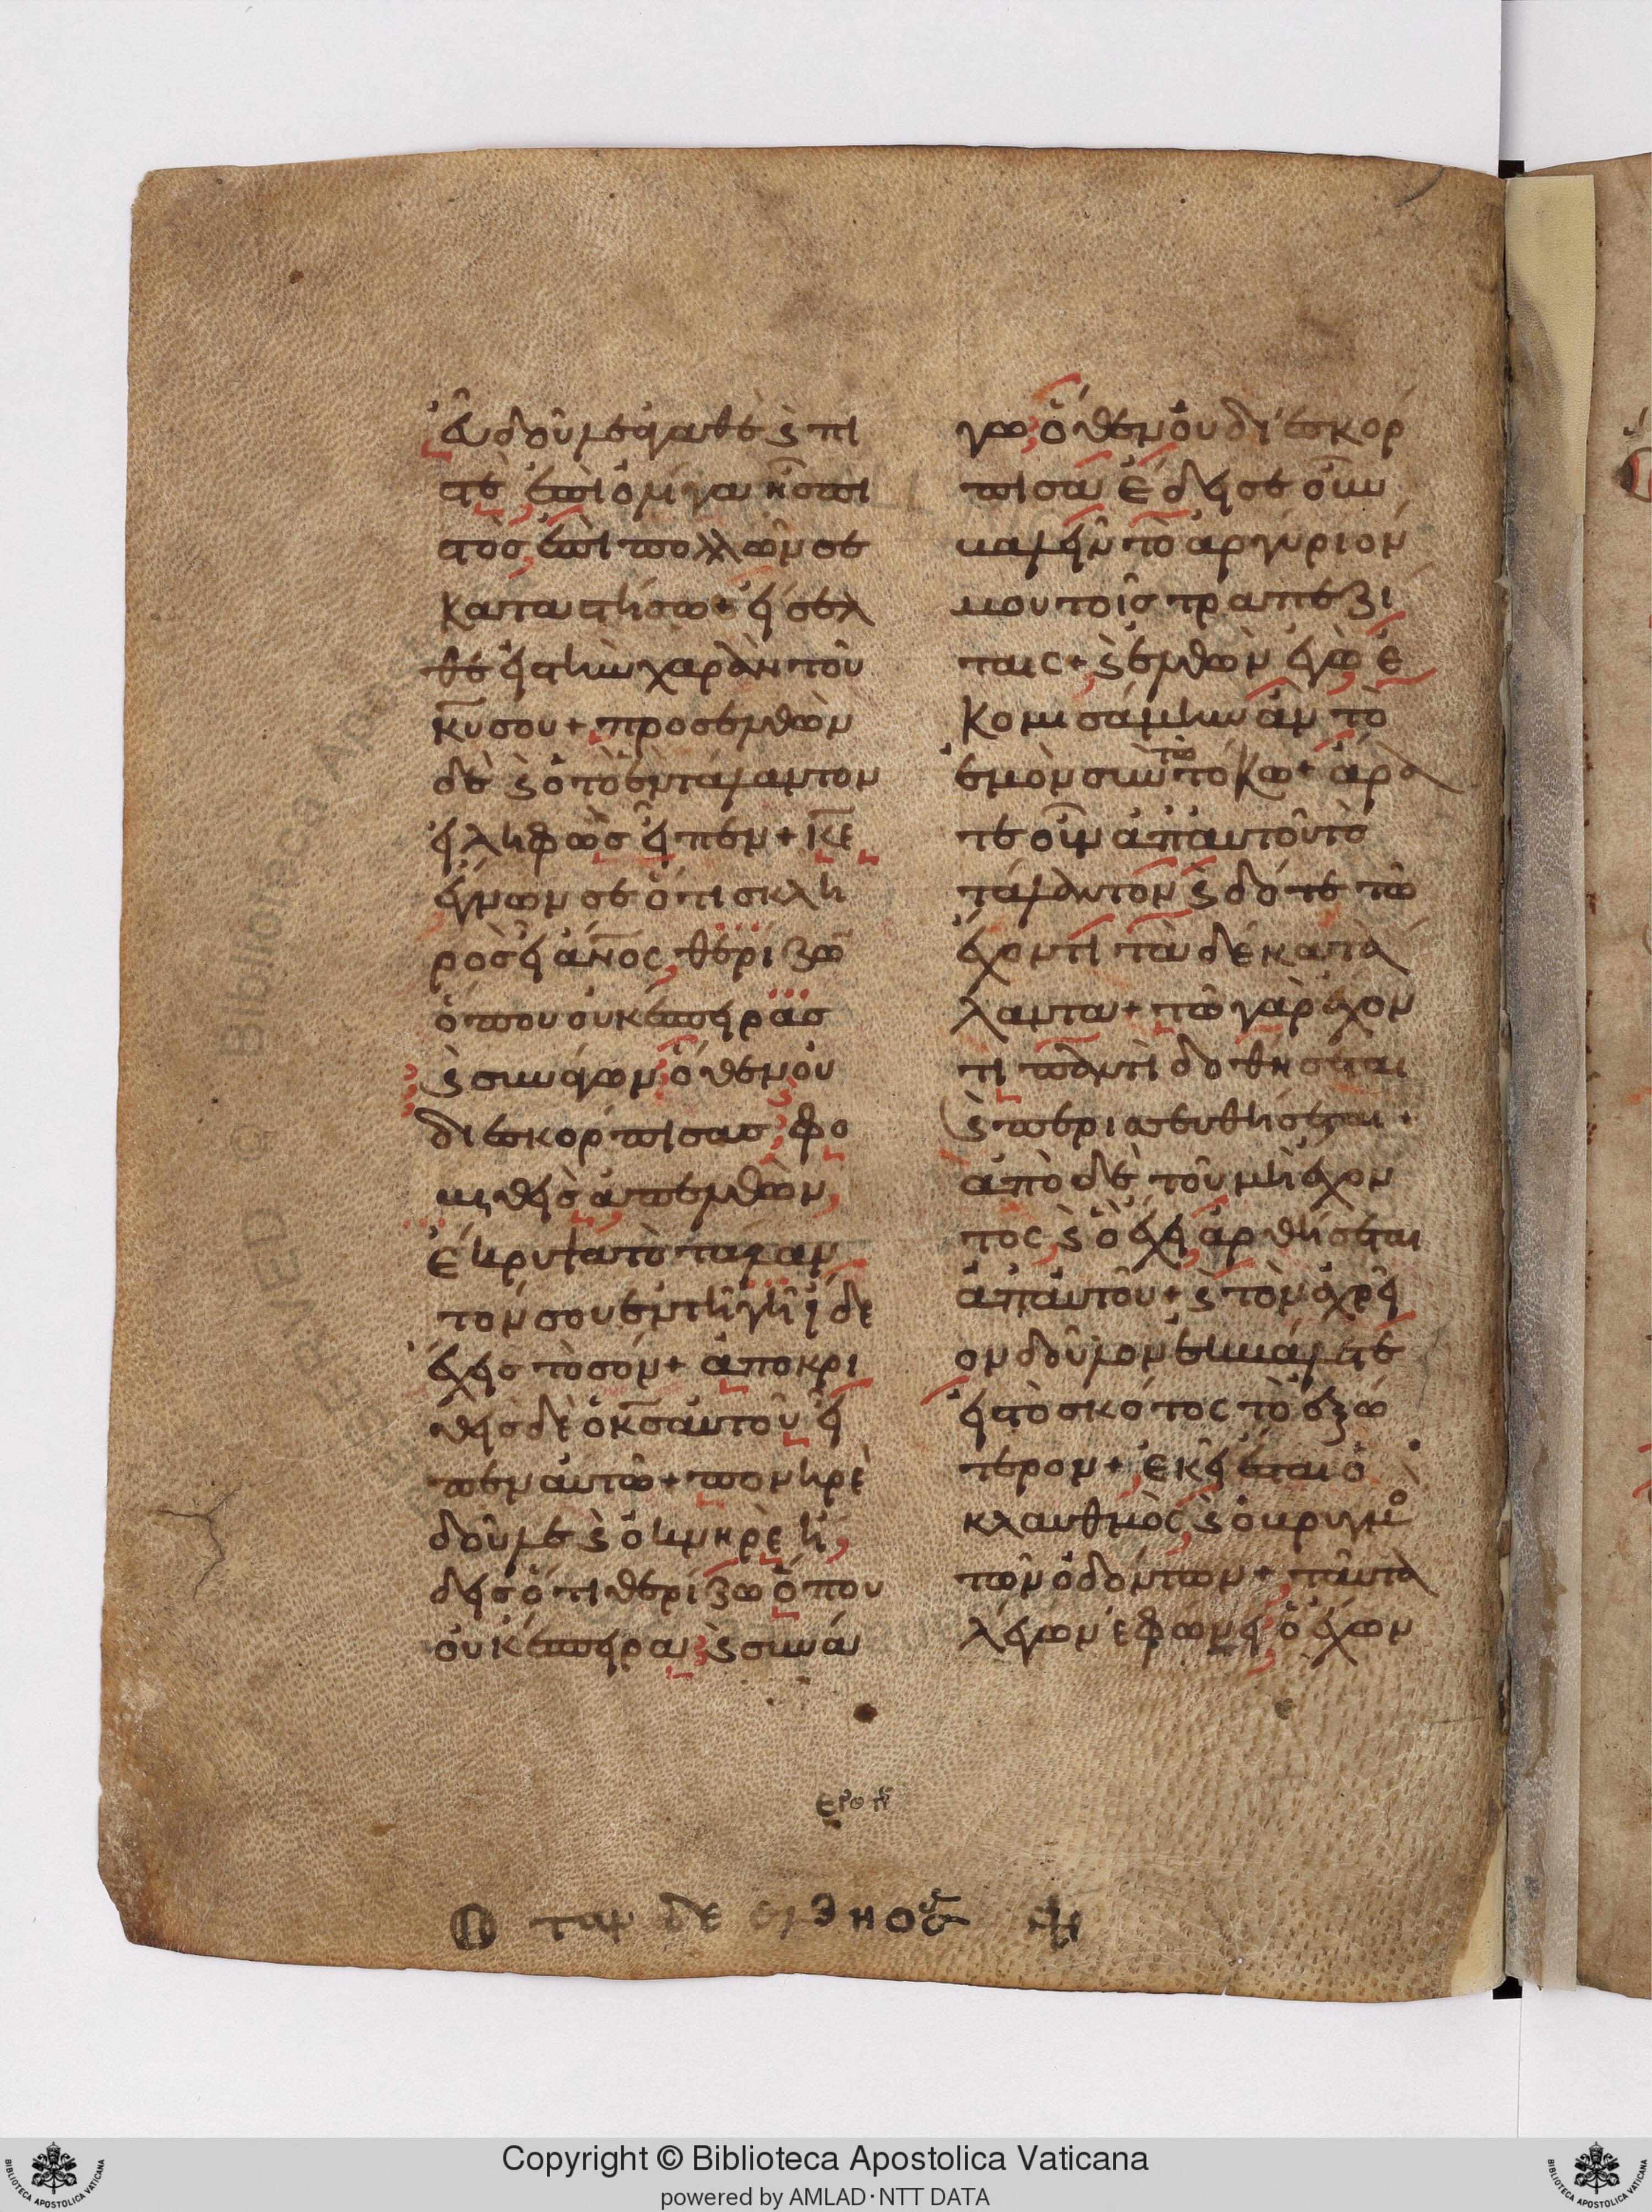 εὖ δοῦλε ἀγαθὲ ϗ πι
στὲ ἐπὶ ὀλίγα ἦς πι
στὸς ἐπὶ πολλῶν σε
καταστήσω + εἴσελ
θε εἰς τὴν χαρὰν τοῦ
κυ σου + προσελθὼν
δὲ ϗ ὁ τὸ ἓν τάλαντον
εἰληφὼς εἶπεν + κε
ἔγνων σε ὅτι σκλη
ρὸς εἶ ἀνος θερίζων
ὅπου οὐκ ἔσπειρας
ϗ συνάγων ὅθεν οὐ
διεσκόρπισας φο
βηθεὶς ἀπελθὼν
ἔκρυψα τὸ τάλαν
τόν σου ἐν τῇ γῇ ἴδε
ἔχεις τὸ σόν + ἀποκρι
θεὶς δὲ ὁ κς αὐτοῦ εἶ
πεν αὐτῶ + πονηρὲ
δοῦλε ϗ ὀκνηρὲ ἤ
δεις ὅτι θερίζω ὅπου
οὐκ ἔσπειρα ϗ συνά
γω ὅθεν οὐ διεσκόρ
πισα ἔδει σε οὖν
βαλεῖν τὸ ἀργύριόν
μου τοῖς τραπεζί
ταις + ϗ ἐλθὼν ἐγὼ ἐ
κομισάμην ἂν τὸ
ἐμὸν σὺν τῶ τόκω + ἄρα
τε οὖν ἀπ' αὐτοῦ τὸ
τάλαντον ϗ δότε τῶ
ἔχοντι τὰ δέκα τά
λαντα + τῶ γὰρ ἔχον
τι παντὶ δοθήσεται
ϗ περισσευθήσεται +
ἀπὸ δὲ τοῦ μὴ ἔχον
τος ϗ ὃ ἔχει ἀρθήσεται
ἀπ' αὐτοῦ + ϗ τὸν ἀχρεῖ
ον δοῦλον ἐκβάλετε
εἰς τὸ σκότος τὸ ἐξώ
τερον + ἐκεῖ ἔσται ὁ
κλαυθμὸς ϗ ὁ βρυγμὸ
τῶν ὀδόντων + ταῦτα
λέγων ἐφώνει ὁ ἔχων
Copyright © Biblioteca Apostolica Vaticana
powered by AMLAD・NTT DATA
BIBLIOTECA APOSTOLICA VATICANA
BIBLIOTECA APOSTOLICA VATICANA